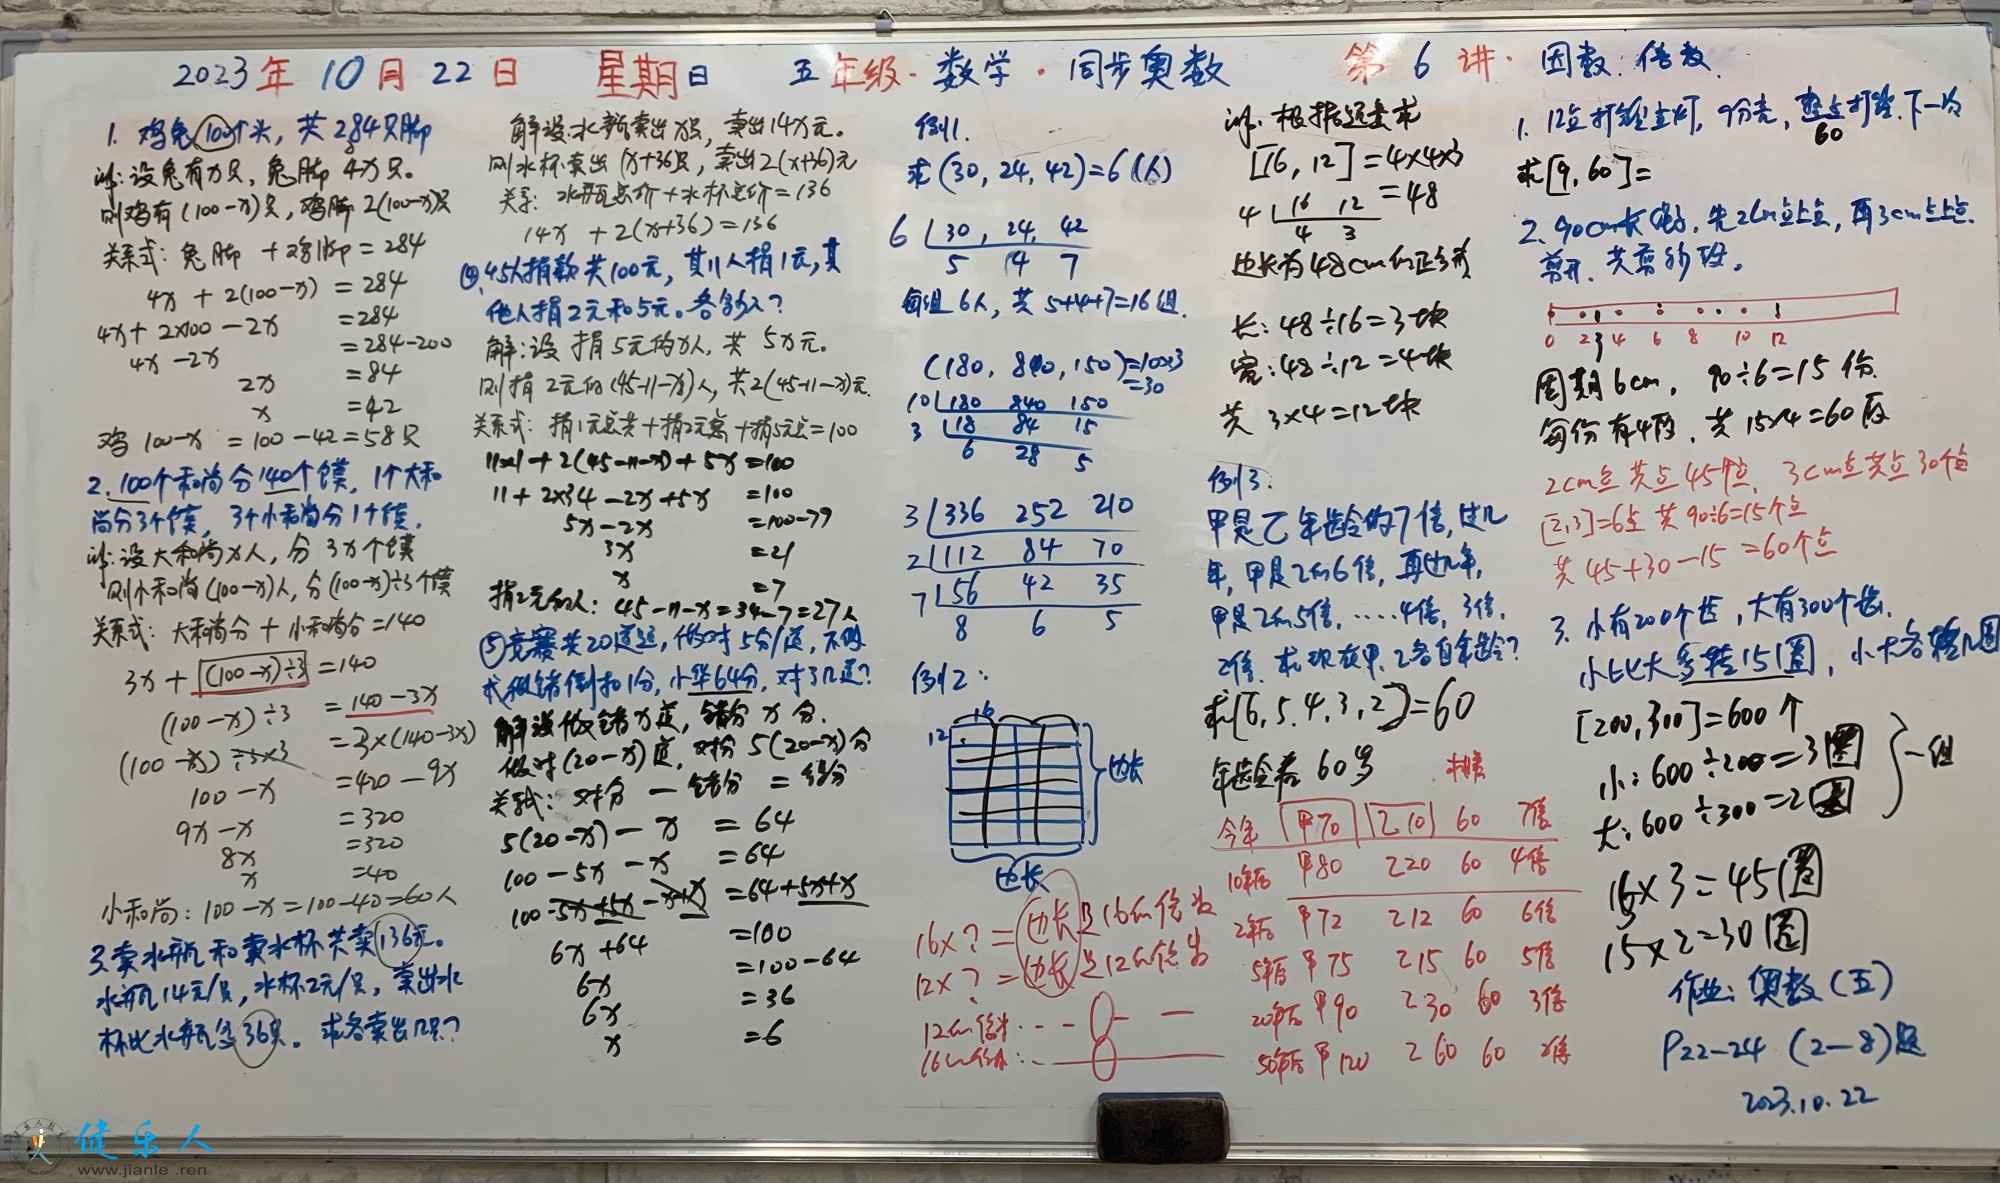 2023年10月22日 星期日 五年级·数学·同步奥数 第6讲·因数.倍数.
1. 鸡兔100个头，共284只脚
解:设兔有x只，兔脚4x只。
则鸡有(100-x)只，鸡脚2(100-x)只
关系式: 兔脚 + 鸡脚 = 284
4x + 2(100-x) = 284
4x + 2×100 - 2x = 284
4x - 2x = 284-200
2x = 84
x = 42
鸡 100-x = 100-42=58只
2. 100个和尚分140个馍，1个大和
尚分3个馍，3个小和尚分1个馍.
解:设大和尚x人，分3x个馍
则小和尚(100-x)人，分(100-x)÷3个馍
关系式: 大和尚分 + 小和尚分=140
3x + (100-x)÷3 = 140
(100-x)÷3 = 140-3x
(100-x)÷3×3 = 3×(140-3x)
100-x = 420-9x
9x-x = 320
8x = 320
x = 40
小和尚: 100-x=100-40=60人
3.卖水瓶和卖水杯共卖136元。
水瓶14元/只，水杯2元/只，卖出水
杯比水瓶多36只。求各卖出几只?
解设:水瓶卖出x只，卖出14x元。
则水杯卖出(x+36)只，卖出2(x+36)元
关系: 水瓶总价+水杯总价=136
14x + 2(x+36) = 136
④.45人捐款共100元，其11人捐1元,其
他人捐2元和5元。各多少人?
解:设 捐5元的x人，共5x元。
则捐2元的(45-11-x)人，共2(45-11-x)元.
关系式: 捐1元总共+捐2元总+捐5元总=100
11×1+2(45-11-x)+5x=100
11+2×34-2x+5x =100
5x-2x =100-79
3x =21
x =7
捐2元的人: 45-11-x=34-7=27人
⑤竞赛共20道题，做对5分/道，不做
或做错倒扣1分，小华64分，对了几道?
解设做错x道，错分x分.
做对(20-x)道，对分5(20-x)分
关系式: 对分 - 错分 = 得分
5(20-x) - x = 64
100-5x-x = 64
100-5x+5x-x+x = 64+5x+x
6x+64 =100
6x =100-64
6x =36
x =6
例1.
求(30, 24, 42)=6(人)
6 30, 24, 42
5 4 7
每组6人，共5+4+7=16组.
(180, 840, 150)=10×3
=30
10 180 840 150
3 18 84 15
6 28 5
3 336 252 210
2 112 84 70
7 56 42 35
8 6 5
例2:
16
12
边长
边长
16×?=边长是16的倍数
12×?=边长是12的倍数
12的倍数:
16的倍数:
解: 根据题意求
[16, 12]=4×4×3
=48
4 16 12
4 3
边长为48cm的正方形
长: 48÷16=3块
宽: 48÷12=4块
共 3×4=12块
例3:
甲是乙年龄的7倍，过几
年，甲是乙的6倍，再过几年,
甲是乙的5倍，……4倍，3倍,
2倍. 求现在甲、乙各自年龄?
求[6,5,4,3,2]=60
年龄差60岁
今年 甲70 乙10 60 7倍
10年后 甲80 乙20 60 4倍
2年后 甲72 乙12 60 6倍
5年后 甲75 乙15 60 5倍
20年后 甲90 乙30 60 3倍
50年后 甲120 乙60 60 2倍
1. 12点打铃主灯，9分亮，整点打铃.下一次
60
求[9,60]=
2. 90cm长绳，先2cm点上点，再3cm点上点.
剪开. 共剪多少段。
0 2 3 4 6 8 10 12
周期6cm， 90÷6=15份.
每份有4段，共15×4=60段
2cm点共点45个点，3cm点共点30个点
[2,3]=6点 共90÷6=15个点
共45+30-15=60个点
3. 小有200个齿，大有300个齿.
小比大多转15圈，小大各转几圈
[200,300]=600个
小: 600÷200=3圈
大: 600÷300=2圈
一组
15×3=45圈
15×2=30圈
作业: 奥数(五)
P22-24 (2-8)题
2023.10.22
健乐人
www.jianle.ren